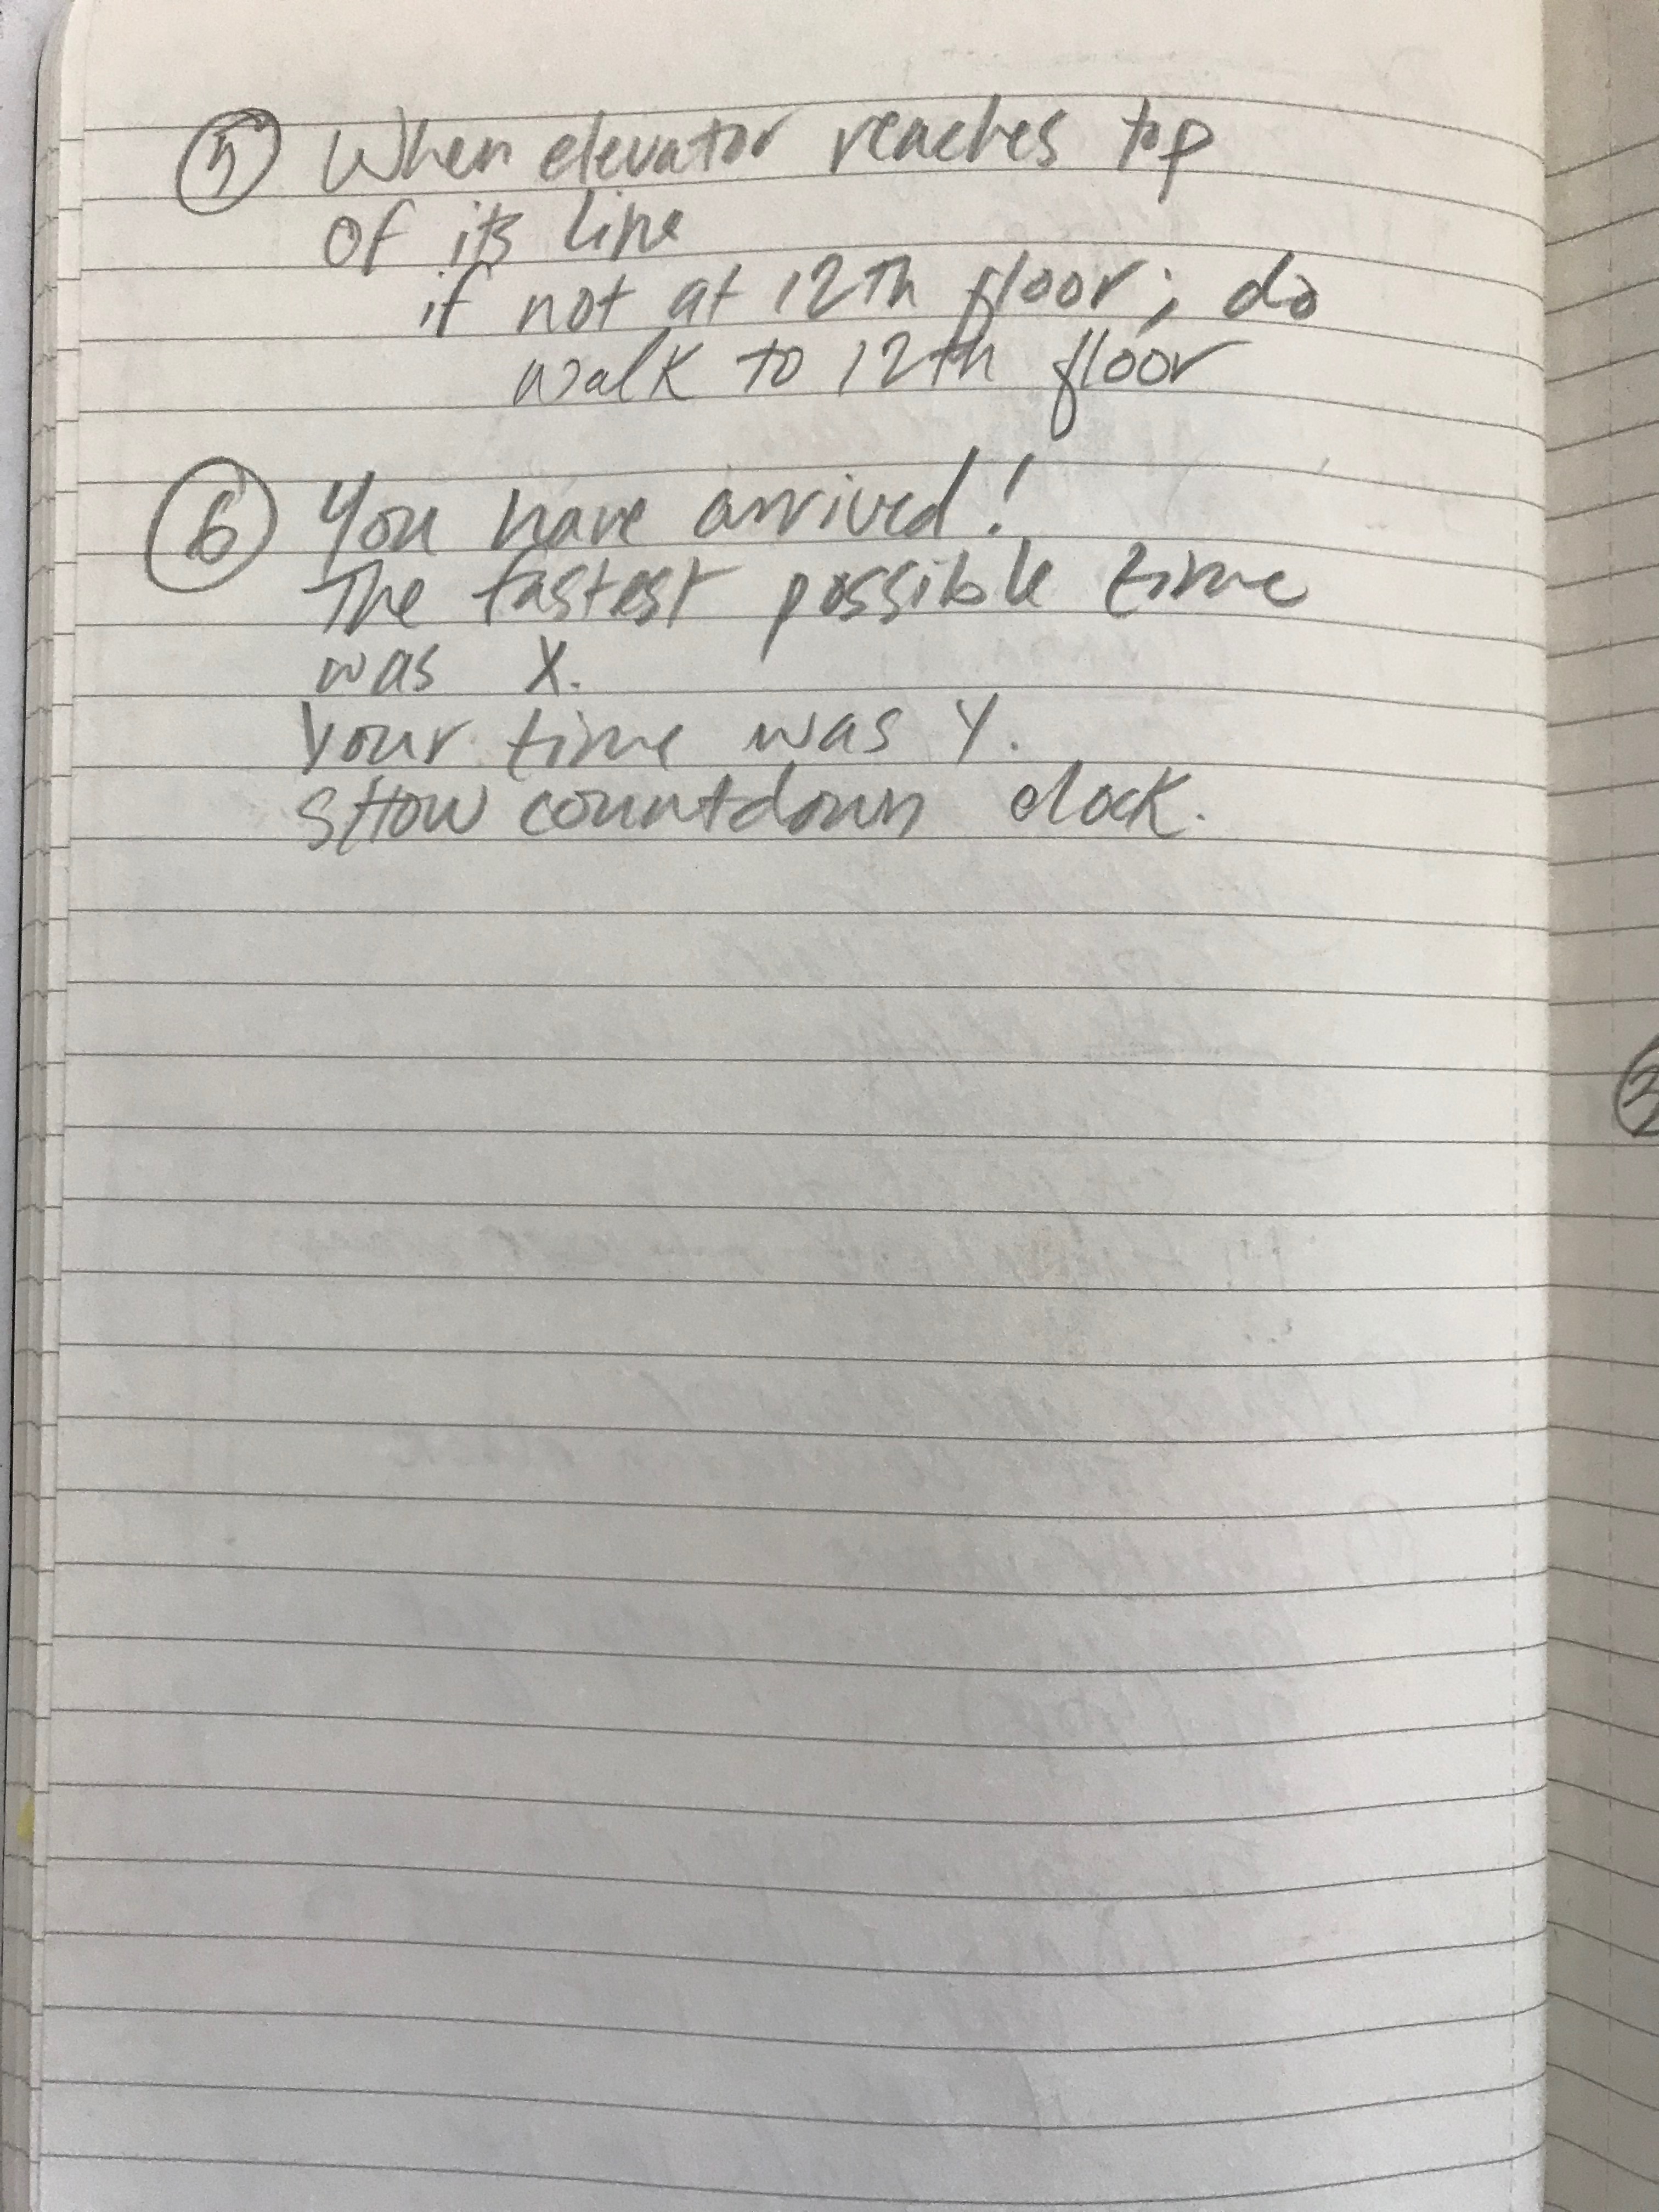 5 When elevator reaches top
of its line
if not at 12th floor; do
walk to 12th floor
6 You have arrived!
The fastest possible time
was X.
Your time was Y.
SHOW countdown clock.